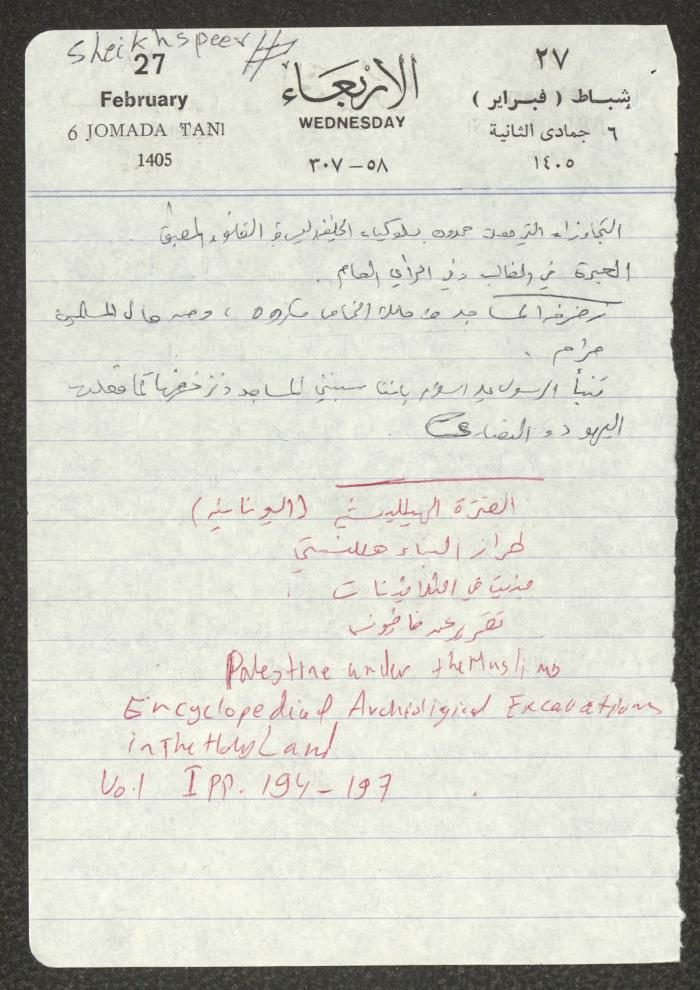 sheikhspeer
27
February
6 JOMADA TANI
1405
الاربعاء
WEDNESDAY
٣٠٧ - ٥٨
٢٧
شباط ( فبراير )
٦ جمادى الثانية
١٤٠٥
العبرة في والغالب وفي الرأي العام .
زخرفة المساجد من مكروه ، ومن مال المسلمين
حرام .
تنبأ الرسول عليه السلام باننا سنبني المساجد ونزخرفها كما فعلت
اليهود و النصارى
الفترة الهيللينستية (اليونانية)
طراز البناء هللنستي
بنيت في الثلاثينات
تقرير عن
Palestine under the Muslims
Encyclopedia of Archioligical Excavations
in The Holy Land
Vol I pp. 194 - 197